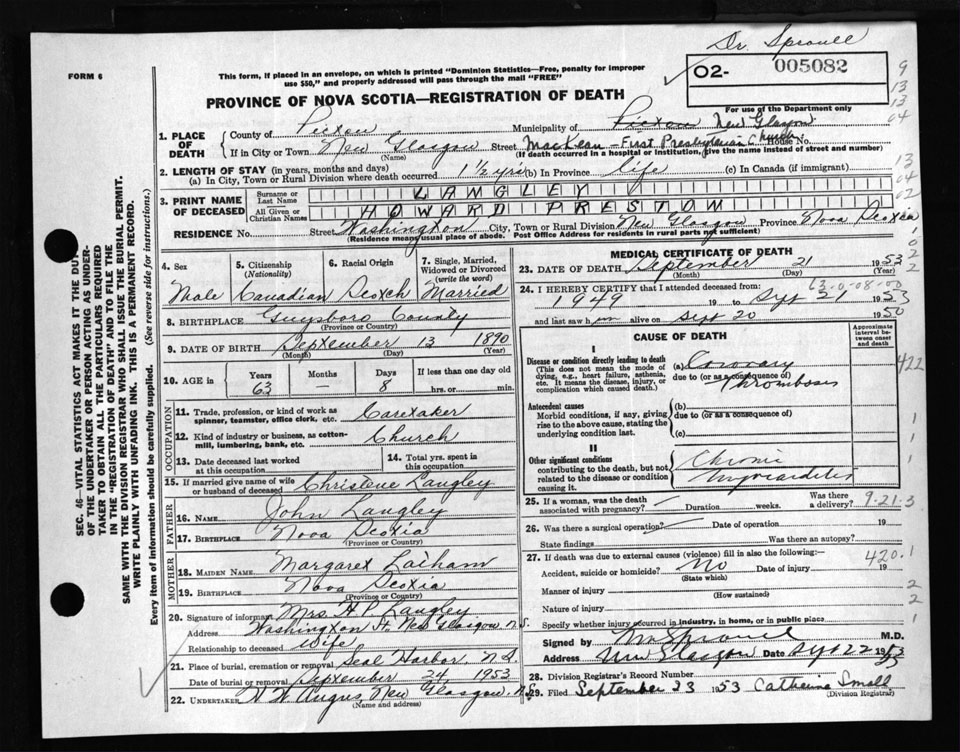 Dr. Sproull
FORM 6
This form, if placed in an envelope, on which is printed "Dominion Statistics—Free, penalty for improper use $50," and properly addressed will pass through the mail "FREE"
O2- 005082
PROVINCE OF NOVA SCOTIA—REGISTRATION OF DEATH
For use of the Department only
1. PLACE OF DEATH
County of Pictou Municipality of Pictou New Glasgow
If in City or Town New Glasgow Street MacLean - First Presbyterian Church House No.
(Name) (If death occurred in a hospital or institution, give the name instead of street and number)
2. LENGTH OF STAY (in years, months and days)
(a) In City, Town or Rural Division where death occurred 1½ yrs (b) In Province Life (c) In Canada (if immigrant)
3. PRINT NAME OF DECEASED
Surname or Last Name LANGLEY
All Given or Christian Names HOWARD PRESTON
RESIDENCE No. Street Washington City, Town or Rural Division New Glasgow Province Nova Scotia
(Residence means usual place of abode. Post Office Address for residents in rural parts not sufficient)
4. Sex Male
5. Citizenship (Nationality) Canadian
6. Racial Origin Scotch
7. Single, Married, Widowed or Divorced (write the word) Married
8. BIRTHPLACE Guysboro County
(Province or Country)
9. DATE OF BIRTH September 13 1890
(Month) (Day) (Year)
10. AGE in Years 63 Months — Days 8 If less than one day old hrs. or min.
OCCUPATION
11. Trade, profession, or kind of work as spinner, teamster, office clerk, etc. Caretaker
12. Kind of industry or business, as cotton-mill, lumbering, bank, etc. Church
13. Date deceased last worked at this occupation
14. Total yrs. spent in this occupation
15. If married give name of wife or husband of deceased Christene Langley
FATHER
16. NAME John Langley
17. BIRTHPLACE Nova Scotia
(Province or Country)
MOTHER
18. MAIDEN NAME Margaret Laiham
19. BIRTHPLACE Nova Scotia
(Province or Country)
20. Signature of informant Mrs. H P Langley
Address Washington St. New Glasgow N.S.
Relationship to deceased Wife
21. Place of burial, cremation or removal Seal Harbor, N.S.
Date of burial or removal September 24, 1953
22. UNDERTAKER H. W. Angus, New Glasgow, N.S.
(Name and address)
MEDICAL CERTIFICATE OF DEATH
23. DATE OF DEATH September 21 1953
(Month) (Day) (Year)
24. I HEREBY CERTIFY that I attended deceased from:
1949 19 to Sept 21 1953
and last saw him alive on Sept 20 1950
CAUSE OF DEATH
Approximate interval between onset and death
I
Disease or condition directly leading to death
(This does not mean the mode of dying, e.g., heart failure, asthenia, etc. It means the disease, injury, or complication which caused death.)
(a) Coronary Thrombosis
due to (or as a consequence of)
422
Antecedent causes
Morbid conditions, if any, giving rise to the above cause, stating the underlying condition last.
(b)
due to (or as a consequence of)
(c)
II
Other significant conditions
contributing to the death, but not related to the disease or condition causing it.
Chronic Myocarditis
25. If a woman, was the death associated with pregnancy? Duration weeks. Was there a delivery?
9-21-3
26. Was there a surgical operation? Date of operation 19
State findings Was there an autopsy?
27. If death was due to external causes (violence) fill in also the following:—
420.1
Accident, suicide or homicide? No Date of injury 19
(State which)
Manner of injury
(How sustained)
Nature of injury
Specify whether injury occurred in industry, in home, or in public place
Signed by M. Sproull M.D.
Address New Glasgow Date Sept 22 1953
28. Division Registrar's Record Number
29. Filed September 23 1953 Catherine Small
(Division Registrar)
SEC. 46—VITAL STATISTICS ACT MAKES IT THE DUTY OF THE UNDERTAKER OR PERSON ACTING AS UNDERTAKER TO OBTAIN ALL THE PARTICULARS REQUIRED IN THE "REGISTRATION OF DEATH" AND TO FILE THE SAME WITH THE DIVISION REGISTRAR WHO SHALL ISSUE THE BURIAL PERMIT.
WRITE PLAINLY WITH UNFADING INK. THIS IS A PERMANENT RECORD.
Every item of information should be carefully supplied. (See reverse side for instructions.)